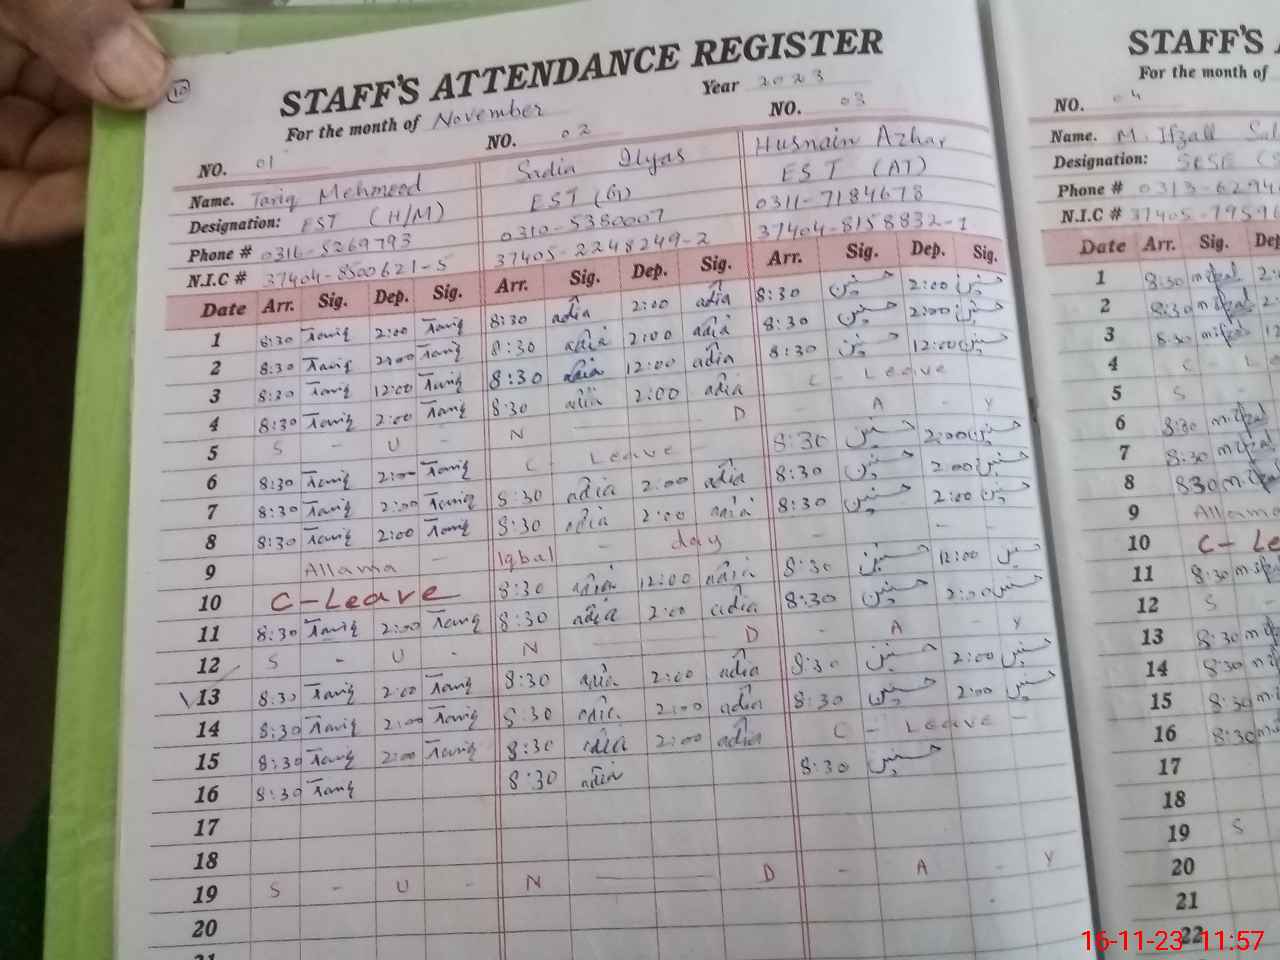 10
STAFF'S ATTENDANCE REGISTER
For the month of November Year 2023
NO. 01 NO. 02 NO. 03
Name. Tariq Mehmood Sadia Ilyas Husnain Azhar
Designation: EST (H/M) EST (G) EST (AT)
Phone # 0316-5269793 0310-5380007 0311-7184678
N.I.C # 37404-8500621-5 37405-2248249-2 37404-8158832-1
Date Arr. Sig. Dep. Sig. Arr. Sig. Dep. Sig. Arr. Sig. Dep. Sig.
1 8:30 Tariq 2:00 Tariq 8:30 adia 2:00 adia 8:30 حسنین 2:00 حسنین
2 8:30 Tariq 2:00 Tariq 8:30 adia 2:00 adia 8:30 حسنین 2:00 حسنین
3 8:30 Tariq 12:00 Tariq 8:30 adia 12:00 adia 8:30 حسنین 12:00 حسنین
4 8:30 Tariq 2:00 Tariq 8:30 adia 2:00 adia C - Leave
5 S - U - N D - A - Y
6 8:30 Tariq 2:00 Tariq C - Leave - 8:30 حسنین 2:00 حسنین
7 8:30 Tariq 2:00 Tariq 8:30 adia 2:00 adia 8:30 حسنین 2:00 حسنین
8 8:30 Tariq 2:00 Tariq 8:30 adia 2:00 adia 8:30 حسنین 2:00 حسنین
9 Allama - Iqbal - day - - -
10 C-Leave 8:30 adia 12:00 adia 8:30 حسنین 12:00 حسنین
11 8:30 Tariq 2:00 Tariq 8:30 adia 2:00 adia 8:30 حسنین 2:00 حسنین
12 S - U - N D - A - Y
13 8:30 Tariq 2:00 Tariq 8:30 adia 2:00 adia 8:30 حسنین 2:00 حسنین
14 8:30 Tariq 2:00 Tariq 8:30 adia 2:00 adia 8:30 حسنین 2:00 حسنین
15 8:30 Tariq 2:00 Tariq 8:30 adia 2:00 adia C - Leave -
16 8:30 Tariq 8:30 adia 8:30 حسنین
17
18
19 S - U - N D - A - Y
20
21
STAFF'S
For the month of
NO. 04
Name. M. Ifzall
Designation: SESE
Phone # 0313-6294
N.I.C # 37405-795
Date Arr. Sig.
1 8:30
2 8:30
3 8:30
4 C -
5 S
6 8:30
7 8:30
8 830
9 Allama
10 C-
11 8:30
12 S -
13 8:30
14 8:30
15 8:30
16 8:30
17
18
19 S
20
21
22
16-11-23 11:57